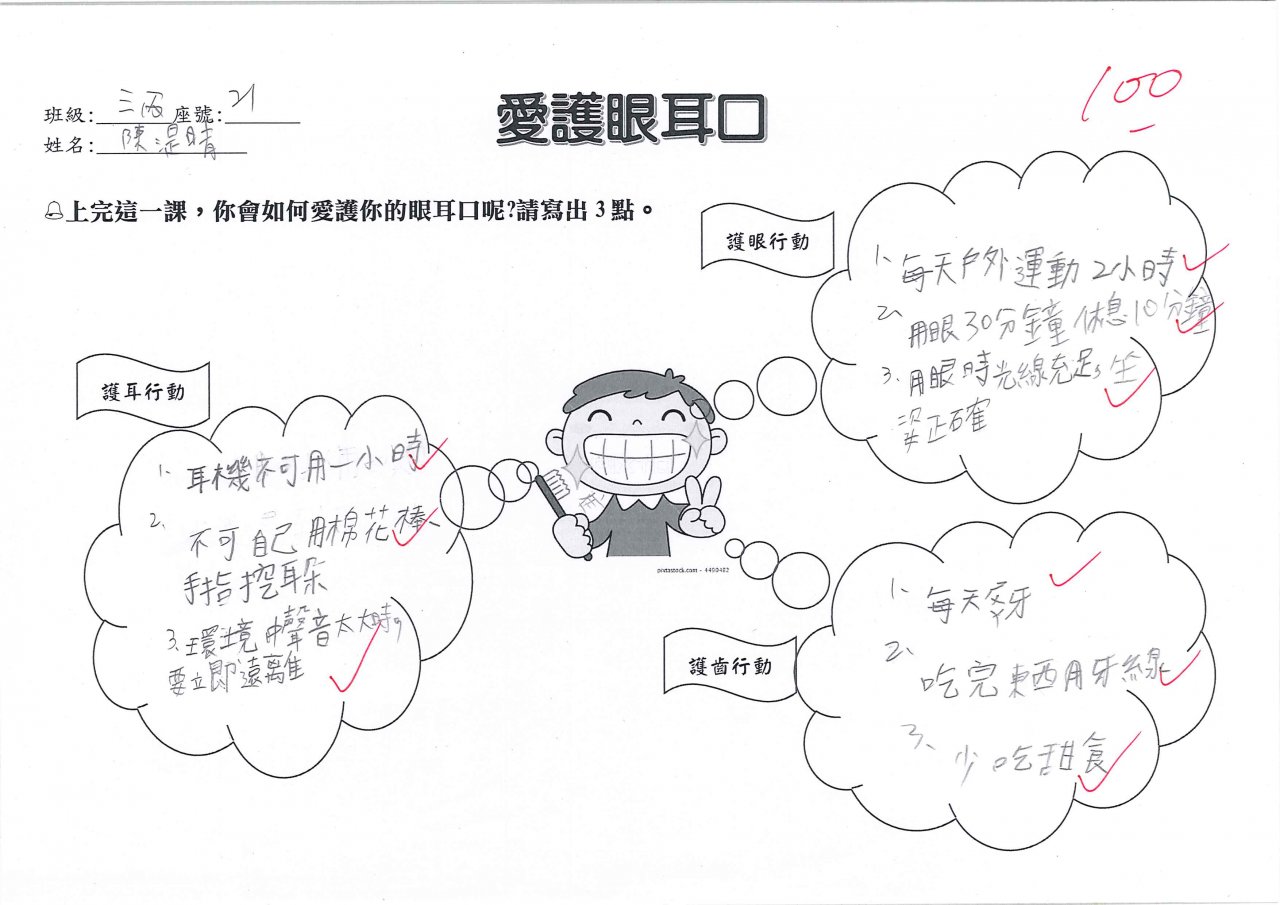 班級:三丙 座號:21
姓名:陳湜晴
愛護眼耳口
100
上完這一課，你會如何愛護你的眼耳口呢?請寫出 3 點。
護眼行動
1、每天戶外運動2小時
2、用眼30分鐘休息10分鐘
3、用眼時光線充足，坐
姿正確
護耳行動
1、耳機不可用一小時
2、不可自己用棉花棒、
手指挖耳朵
3、環境中聲音太大時，
要立即遠離
pixtastock.com - 4490402
護齒行動
1、每天刷牙
2、吃完東西用牙線
3、少吃甜食